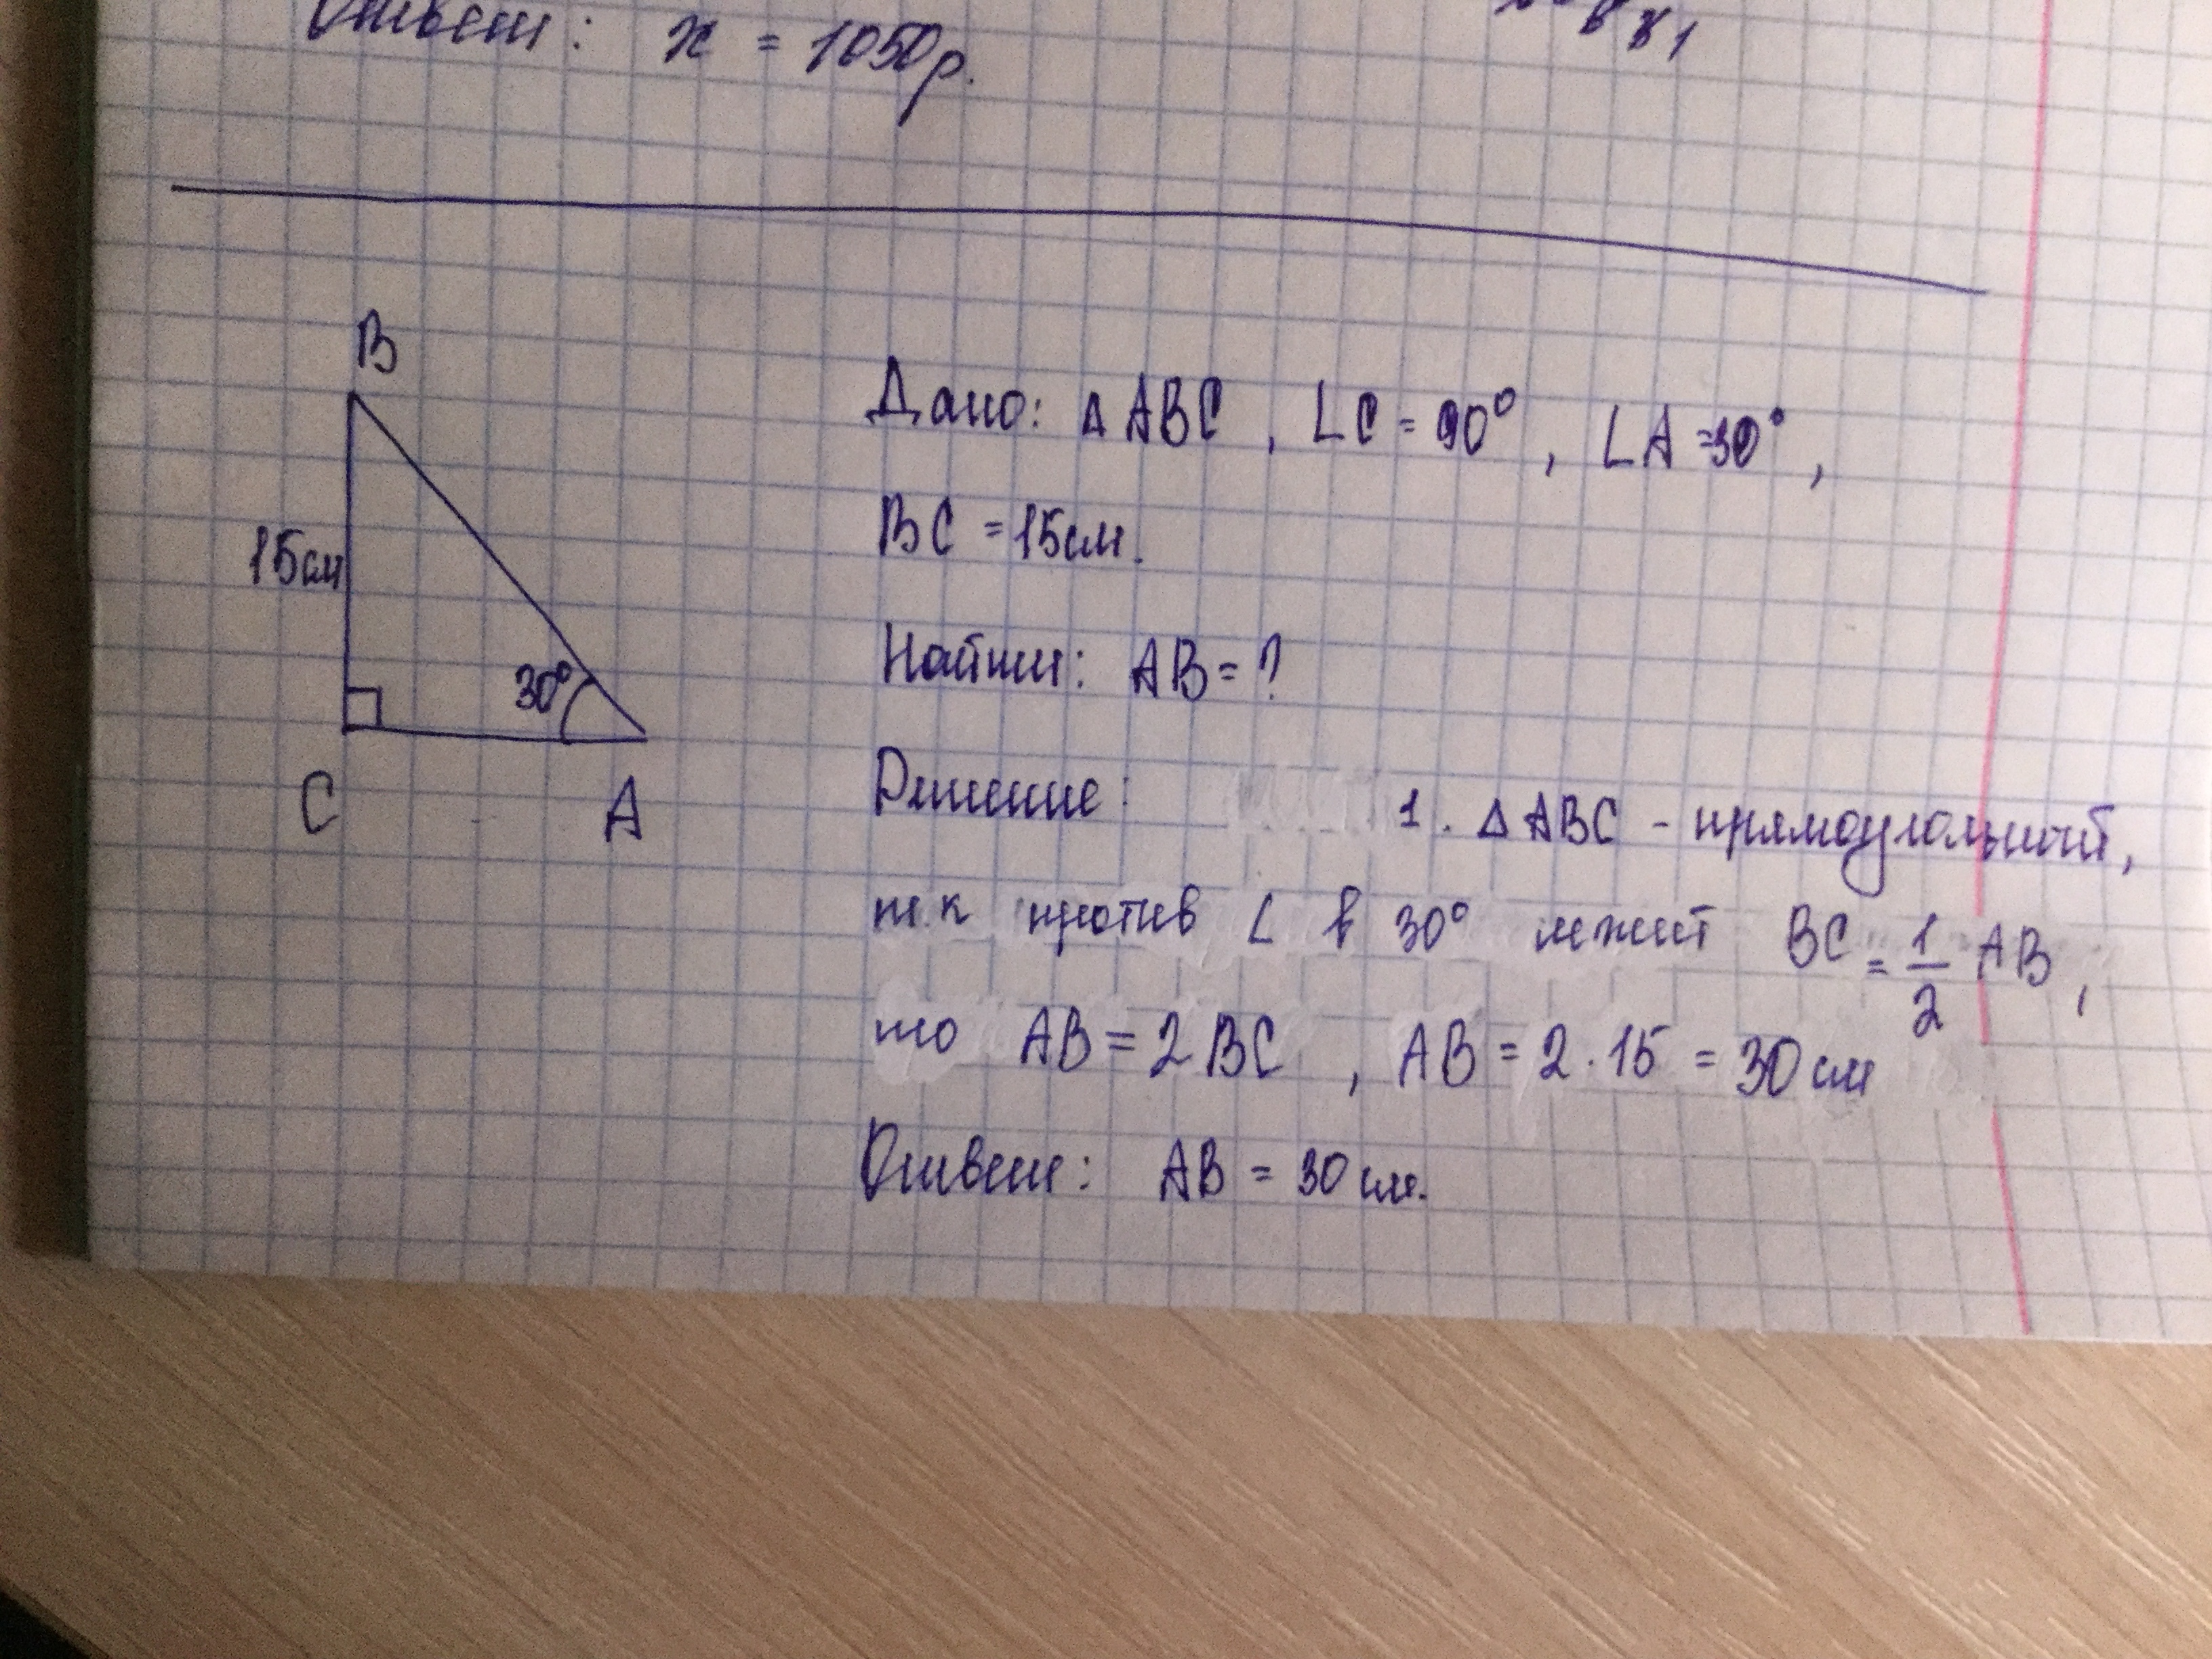 Ответ: x = 1050р.
B
15см
30°
C A
Дано: Δ ABC, ∠C = 90°, ∠A = 30°,
BC = 15см.
Найти: AB = ?
Решение: 1. Δ ABC - прямоугольный,
т.к против ∠ в 30° лежит BC = 1/2 AB,
то AB = 2BC, AB = 2 · 15 = 30 см
Ответ: AB = 30 см.